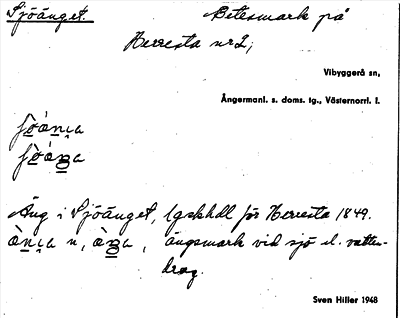 Sjöänget. Betesmark på
Herresta nr 2;
Vibyggerå sn,
Ångermanl. s. doms. lg., Västernorrl. l.
Äng i Sjöänget, lgskhdl för Herresta 1849.
ängsmark vid sjö el. vatten-
drag.
Sven Hiller 1948